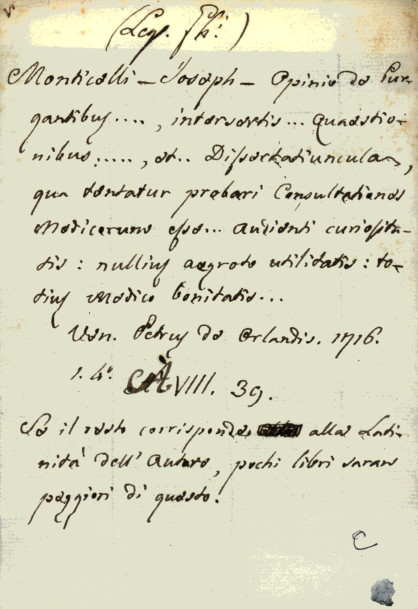 (Leg. Fh:)
Monticelli - Joseph - Opinio de Pur-
gantibus...., intersertis... Quaestio-
nibus,...., et.. Dissertatiuncula,
qua tentatur probari Consultationes
Medicorum esse... Audienti curiosita-
tis: nullius aegroto utilitatis: to-
tius Medico bonitatis...
Ven. Petrus de Orlandis. 1716.
1. 4°.
VIII. 39.
Se il resto corrisponde alla Lati-
nità dell' Autore, pochi libri saran
peggiori di questo.
C